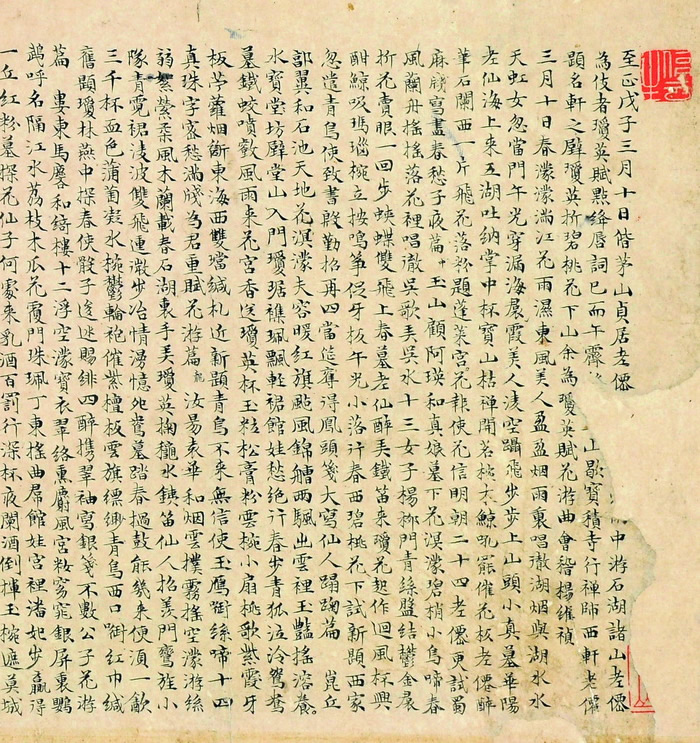 至正戊子三月十日偕茅山貞居老僊中游石湖諸山老僊
為伎者瓊英賦點絳唇詞已而午霽山歇寶積寺行禪師西軒老僊
題名軒之壁瓊英折碧桃花下山余為瓊英賦花游曲會稽楊維禎
三月十日春濛濛滿江花雨濕東風美人盈盈烟雨裏唱徹湖烟與湖水水
天虹女忽當門午光穿漏海霞裙美人淩空躡飛步步上山頭小真墓華陽
老仙海上來五湖吐納掌中杯寶山枯禪開茗椀木鯨吼罷催花板老僊醉
華石闌西一片飛花落粉題蓬萊宮花報使花信明朝二十四老僊更試蜀
麻牋寫畫春愁子夜篇 玉山顧阿瑛和真娘墓下花溟濛碧梢小鳥啼春
風蘭舟搖搖落花裡唱徹吳歌美吳水十三女子楊柳門青絲盤結鬱金裙
折花賣眼一回步蛺蝶雙飛上春墓老仙醉美鐵笛來瓊花起作迴風杯興
酣鯨吸瑪瑙椀立按鳴箏促牙板午光小落行春西碧桃花下試新題西家
忽遣青鳥使致書殷勤招再四當筵奪得鳳頭箋大寫仙人蹋踘篇 崑丘
郭翼和石池天地花溟濛夫容暖紅旗颭風錦艚兩颿出雲裡玉艷搖溶養
水寶堂坊壁堂山入門瓊琚襍珮飄輕裙館娃愁絕行春步青狐泣冷鴛鴦
墓鐵蛟噴歎風雨来花宮香送瓊英杯玉粒松膏粉雲椀小扇桃歌紫霞牙
板苧蘿烟斷東海西雙璫緘札近新題青鳥不来無信使玉鴈銜絲啼十四
真珠字密愁滿牋為君重賦花游篇 汝昜袁華和烟雲樸霧搖空濛游絲
弱絮縈柔風木蘭載春石湖裏手美瓊英掬龝水鐵笛仙人招羨門鸞旌小
隊青霓裙淩波雙飛連澂步冶情湧憶死鴛墓踏春撾鼓能幾来便湏一飲
三千杯血色蒲萄凝水椀鬱輪袍催紫檀板雲旗縹緲青鳥西口啣紅巾緘
舊題瓊林燕中探春使骰子逡迯賜緋四醉攜翠袖寫銀箋不數公子花游
篇 婁東馬麐和綺樓十二浮空濛寶衣翠絡熏麝風宮籹窈窕銀屏裏鸚
鵡呼名隔江水荔枝木瓜花霞門珠珮丁東搖曲帬館娃宮裡潘妃步贏得
一丘紅粉墓探花仙子何處来乳酒百罰行深杯夜闌酒倒捧玉椀譙莫城